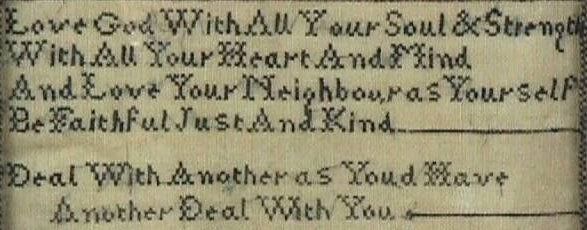 Love God With All Your Soul & Strength
With All Your Heart And Mind
And Love Your Neighbour as Your self
Be Faithful Just And Kind
Deal With Another as You'd Have
Another Deal With You